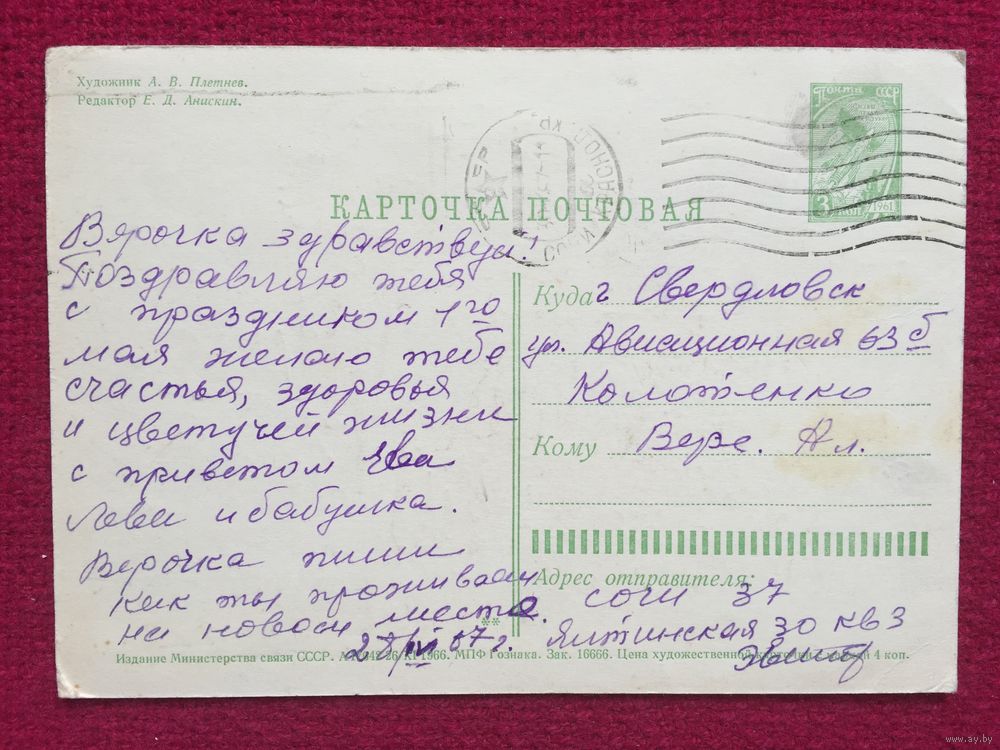 Художник А. В. Плетнев.
Редактор Е. Д. Анискин.
Почта СССР
3 коп
1961
КАРТОЧКА ПОЧТОВАЯ
Вярочка здравствуй!
Поздравляю тебя
с праздником 1го
мая желаю тебе
счастья, здоровья
и цветучей жизни
с приветом Ева
Лева и бабушка.
Верочка пиши
как ты проживаеш
на новом месте.
Куда г Свердловск
ул. Авиационная 63 б
Колотенко
Кому Вере. Ал.
Адрес отправителя:
Сочи 37
Ялтинская 30 кв 3
67 г.
**
Издание Министерства связи СССР. 26/XI 1966. МПФ Гознака. Зак. 16666. Цена художественной 4 коп.
www.ay.by